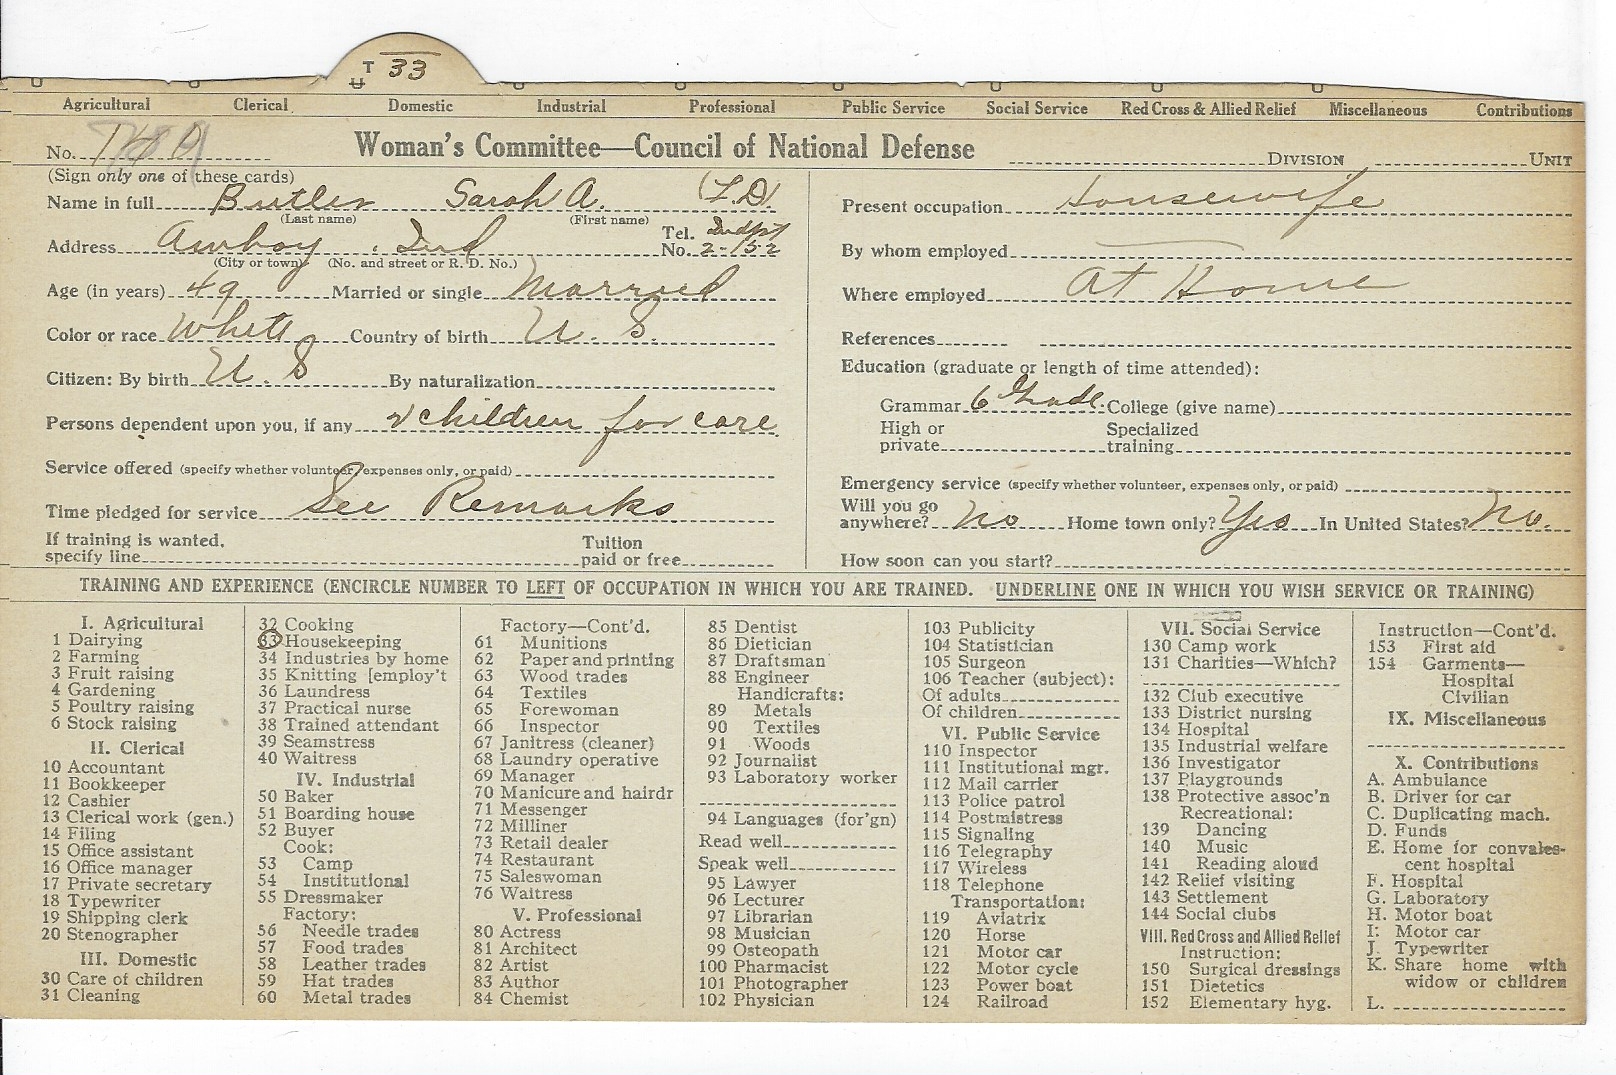 T 33
Agricultural Clerical Domestic Industrial Professional Public Service Social Service Red Cross & Allied Relief Miscellaneous Contributions
No. Woman's Committee—Council of National Defense DIVISION UNIT
(Sign only one of these cards)
Name in full Butler Sarah A. (L.D.)
(Last name) (First name)
Address Amboy, Ind Tel. No. 2-152
(City or town) (No. and street or R. D. No.)
Age (in years) 49 Married or single Married
Color or race White Country of birth U. S.
Citizen: By birth U. S By naturalization
Persons dependent upon you, if any 2 children for care
Service offered (specify whether volunteer, expenses only, or paid)
Time pledged for service See Remarks
If training is wanted, specify line Tuition paid or free
Present occupation Housewife
By whom employed
Where employed At Home
References
Education (graduate or length of time attended):
Grammar 6 Grade College (give name)
High or private Specialized training
Emergency service (specify whether volunteer, expenses only, or paid)
Will you go anywhere? No Home town only? Yes In United States? No.
How soon can you start?
TRAINING AND EXPERIENCE (ENCIRCLE NUMBER TO LEFT OF OCCUPATION IN WHICH YOU ARE TRAINED. UNDERLINE ONE IN WHICH YOU WISH SERVICE OR TRAINING)
I. Agricultural
1 Dairying
2 Farming
3 Fruit raising
4 Gardening
5 Poultry raising
6 Stock raising
II. Clerical
10 Accountant
11 Bookkeeper
12 Cashier
13 Clerical work (gen.)
14 Filing
15 Office assistant
16 Office manager
17 Private secretary
18 Typewriter
19 Shipping clerk
20 Stenographer
III. Domestic
30 Care of children
31 Cleaning
32 Cooking
33 Housekeeping
34 Industries by home
35 Knitting [employ't
36 Laundress
37 Practical nurse
38 Trained attendant
39 Seamstress
40 Waitress
IV. Industrial
50 Baker
51 Boarding house
52 Buyer
Cook:
53 Camp
54 Institutional
55 Dressmaker
Factory:
56 Needle trades
57 Food trades
58 Leather trades
59 Hat trades
60 Metal trades
Factory—Cont'd.
61 Munitions
62 Paper and printing
63 Wood trades
64 Textiles
65 Forewoman
66 Inspector
67 Janitress (cleaner)
68 Laundry operative
69 Manager
70 Manicure and hairdr
71 Messenger
72 Milliner
73 Retail dealer
74 Restaurant
75 Saleswoman
76 Waitress
V. Professional
80 Actress
81 Architect
82 Artist
83 Author
84 Chemist
85 Dentist
86 Dietician
87 Draftsman
88 Engineer
Handicrafts:
89 Metals
90 Textiles
91 Woods
92 Journalist
93 Laboratory worker
94 Languages (for'gn)
Read well
Speak well
95 Lawyer
96 Lecturer
97 Librarian
98 Musician
99 Osteopath
100 Pharmacist
101 Photographer
102 Physician
103 Publicity
104 Statistician
105 Surgeon
106 Teacher (subject):
Of adults
Of children
VI. Public Service
110 Inspector
111 Institutional mgr.
112 Mail carrier
113 Police patrol
114 Postmistress
115 Signaling
116 Telegraphy
117 Wireless
118 Telephone
Transportation:
119 Aviatrix
120 Horse
121 Motor car
122 Motor cycle
123 Power boat
124 Railroad
VII. Social Service
130 Camp work
131 Charities—Which?
132 Club executive
133 District nursing
134 Hospital
135 Industrial welfare
136 Investigator
137 Playgrounds
138 Protective assoc'n
Recreational:
139 Dancing
140 Music
141 Reading aloud
142 Relief visiting
143 Settlement
144 Social clubs
VIII. Red Cross and Allied Relief
Instruction:
150 Surgical dressings
151 Dietetics
152 Elementary hyg.
Instruction—Cont'd.
153 First aid
154 Garments—
Hospital
Civilian
IX. Miscellaneous
X. Contributions
A. Ambulance
B. Driver for car
C. Duplicating mach.
D. Funds
E. Home for convales-
cent hospital
F. Hospital
G. Laboratory
H. Motor boat
I. Motor car
J. Typewriter
K. Share home with
widow or children
L.